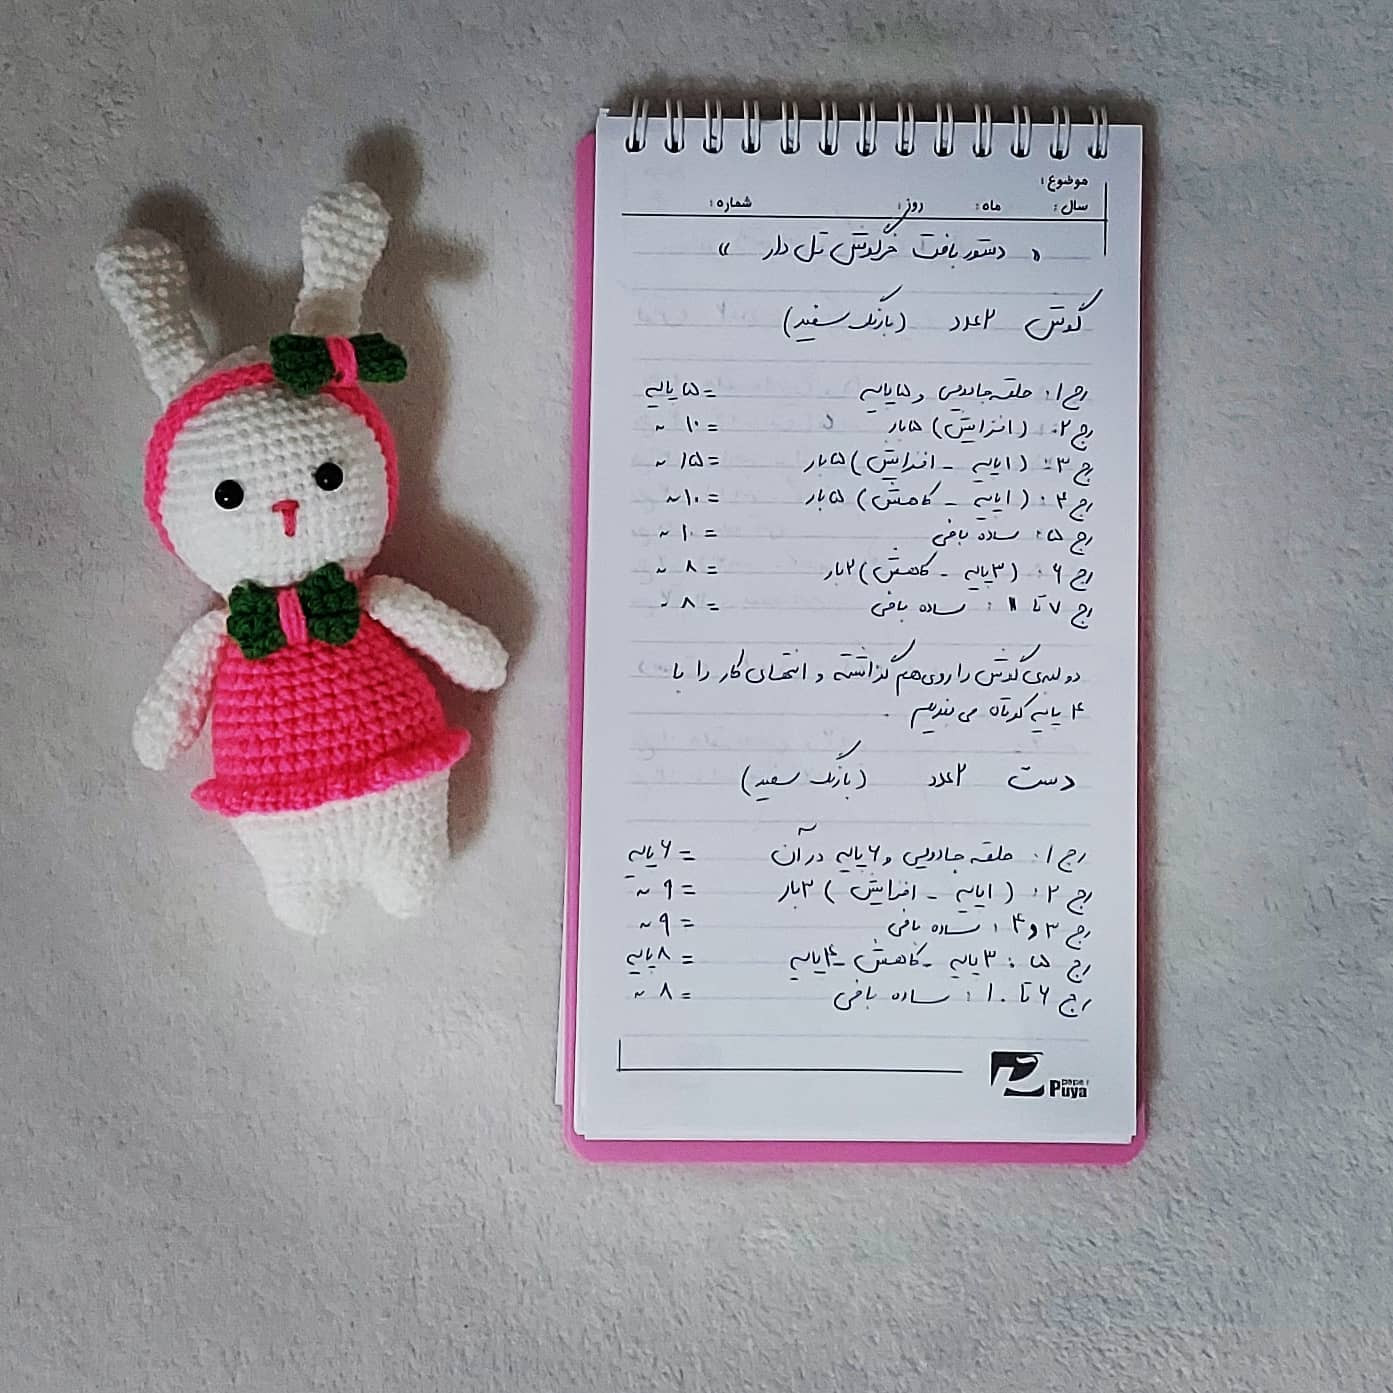 موضوع :
سال : ماه : روز : شماره :
« دستور بافت خرگوش تل دار »
گوش ۲عدد (بارنگ سفید)
رج ۱: حلقه جادویی و ۵پایه =۵پایه
رج ۲: (افزایش) ۵بار =۱۰ ~
رج ۳: (۱پایه - افزایش) ۵بار =۱۵ ~
رج ۴: (۱پایه - کاهش) ۵بار =۱۰ ~
رج ۵: ساده بافی =۱۰ ~
رج ۶: (۳پایه - کاهش) ۲بار =۸ ~
رج ۷ تا ۱۱: ساده بافی =۸ ~
دو لبه‌ی گوش را روی هم گذاشته و انتهای کار را با
۴ پایه کوتاه می بندیم .
دست ۲عدد (بارنگ سفید)
رج ۱: حلقه جادویی و ۶پایه در آن =۶پایه
رج ۲: (۱پایه - افزایش) ۳بار =۹ ~
رج ۳ و ۴: ساده بافی =۹ ~
رج ۵: ۳پایه - کاهش - ۴پایه =۸پایه
رج ۶ تا ۱۰: ساده بافی =۸ ~
paper
Puya